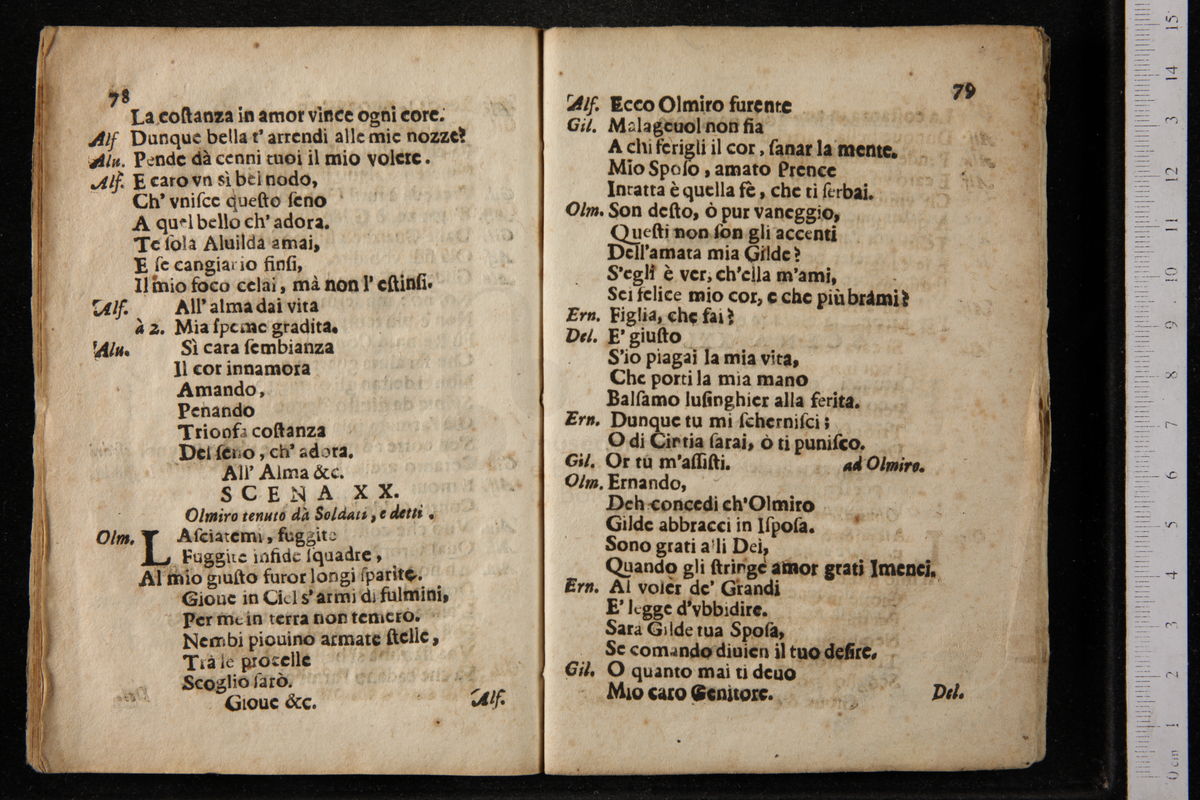 78
La costanza in amor vince ogni core.
Alf Dunque bella t' arrendi alle mie nozze?
Alu. Pende dà cenni tuoi il mio volere.
Alf. E caro vn sì bel nodo,
Ch' vnisce questo seno
A quel bello ch' adora.
Te sola Aluilda amai,
E se cangiar io finsi,
Il mio foco celai, mà non l' estinsi.
Alf. All' alma dai vita
à 2. Mia speme gradita.
Alu. Sì cara sembianza
Il cor innamora
Amando,
Penando
Trionfa costanza
Del seno, ch' adora.
All' Alma &c.
SCENA XX.
Olmiro tenuto dà Soldati, e detti.
Olm. LAsciatemi, fuggite
Fuggite infide squadre,
Al mio giusto furor longi sparite.
Gioue in Ciel s' armi di fulmini,
Per me in terra non temerò.
Nembi piouino armate stelle,
Trà le procelle
Scoglio sarò.
Gioue &c.
Alf.
79
Alf. Ecco Olmiro furente
Gil. Malageuol non fia
A chi ferigli il cor, sanar la mente.
Mio Sposo, amato Prence
Intatta è quella fè, che ti serbai.
Olm. Son desto, ò pur vaneggio,
Questi non son gli accenti
Dell'amata mia Gilde?
S'egli è ver, ch'ella m'ami,
Sei felice mio cor, e che più brami?
Ern. Figlia, che fai?
Del. E' giusto
S'io piagai la mia vita,
Che porti la mia mano
Balsamo lusinghier alla ferita.
Ern. Dunque tu mi schernisci;
O di Cintia sarai, ò ti punisco.
Gil. Or tu m'assisti. ad Olmiro.
Olm. Ernando,
Deh concedi ch'Olmiro
Gilde abbracci in Isposa.
Sono grati alli Dei,
Quando gli stringe amor grati Imenei.
Ern. Al volèr de' Grandi
E' legge d'vbbidire.
Sara Gilde tua Sposa,
Se comando diuien il tuo desire.
Gil. O quanto mai ti deuo
Mio caro Genitore.
Del.